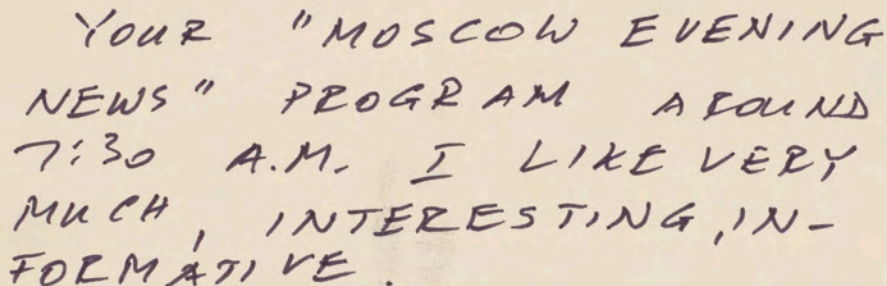 YOUR "MOSCOW EVENING
NEWS" PROGRAM AROUND
7:30 A.M. I LIKE VERY
MUCH, INTERESTING, IN-
FORMATIVE.